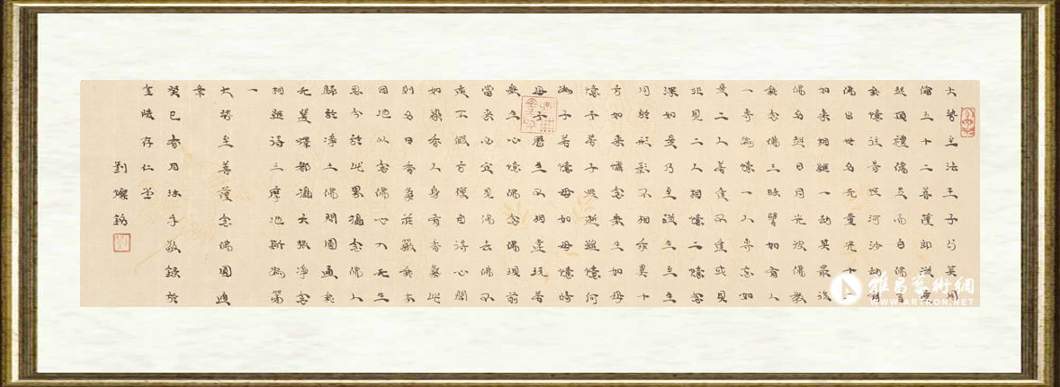 大勢至法王子与其同
倫五十二菩薩即從座
起頂禮佛足而白佛言
我憶往昔恒河沙劫有
佛出世名无量光十二
如来相繼一劫其最後
佛名超日月光彼佛教
我念佛三昧譬如有人
一專為憶一人專忘如
是二人若逢不逢或見
非見二人相憶二憶念
深如是乃至從生至生
同於形影不相乖異十
方如来憐念眾生如母
憶子若子逃逝雖憶何
為子若憶母如母憶時
母子歷生不相違遠若
眾生心憶佛念佛現前
當来必定見佛去佛不
遠不假方便自得心開
如染香人身有香氣此
則名曰香光莊嚴我本
因地以念佛心入无生
忍今於此界攝念佛人
歸於淨土佛問圓通我
无選擇都攝六根淨念
相繼得三摩地斯為第
一
大勢至菩薩念佛圓通
章
癸巳春月沐手敬錄於
金陵存仁堂
劉燦銘
雅昌藝術網
WWW.ARTRON.NET